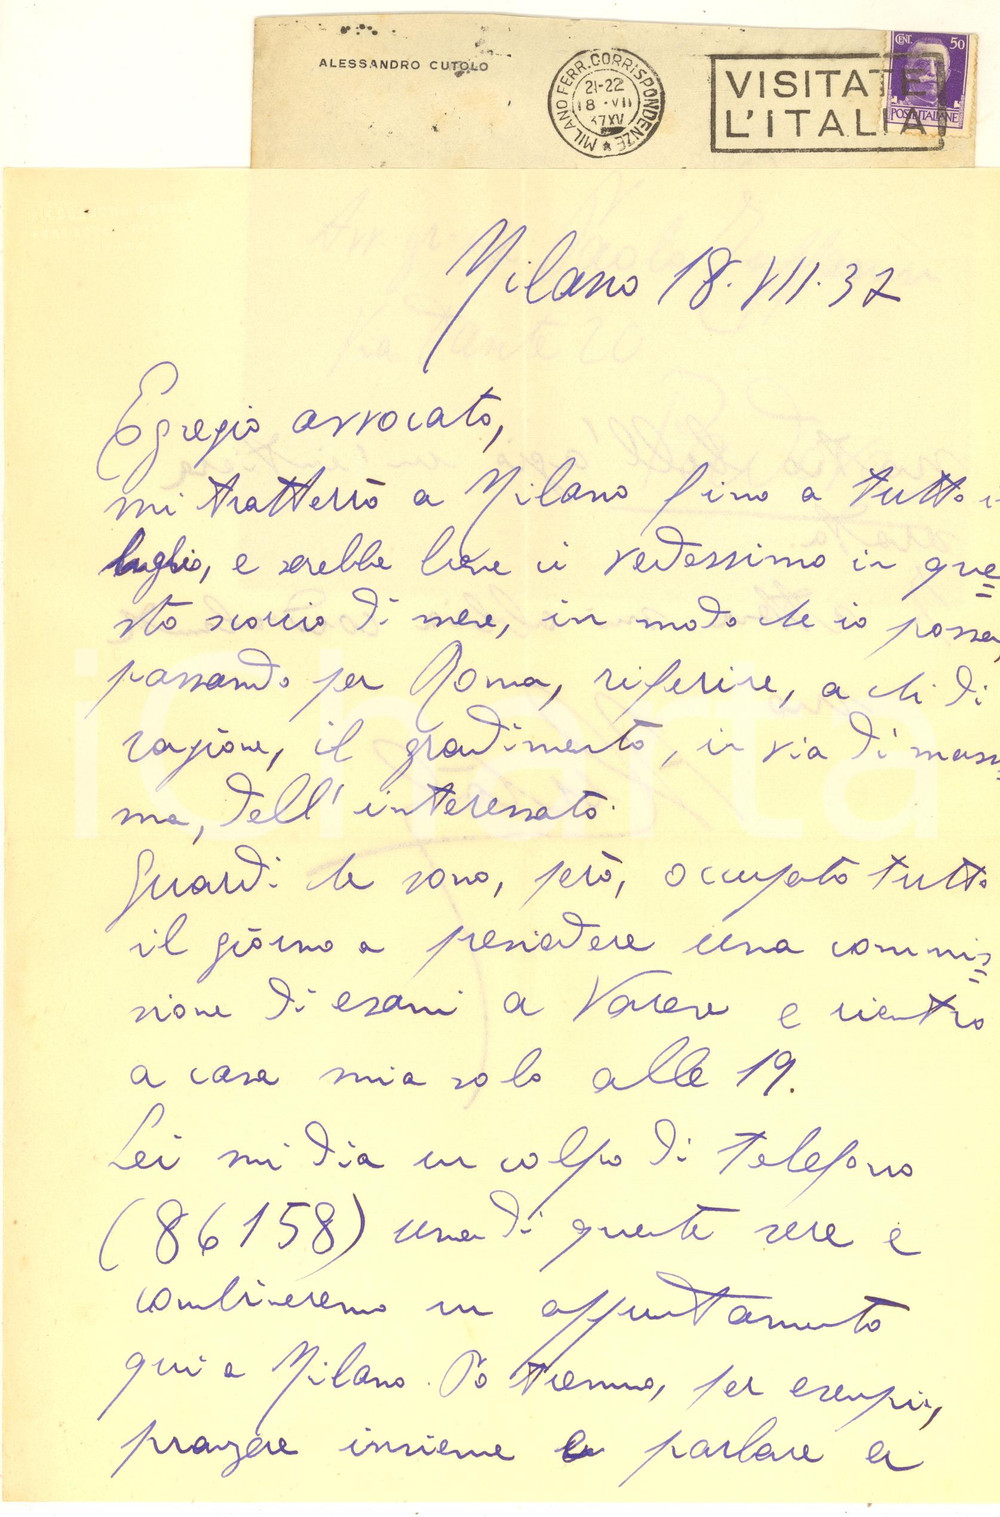 ALESSANDRO CUTOLO
MILANO FERR. CORRISPONDENZE
21-22
18-VII
37XV
VISITATE
L'ITALIA
CENT. 50
POSTE ITALIANE
Milano 18.VII.37
Egregio avvocato,
mi tratterrò a Milano fino a tutto i
luglio, e sarebbe bene ci vedessimo in que=
sto scorcio di mese, in modo che io possa,
passando per Roma, riferire, a chi di
ragione, il gradimento, in via di mass=
ma, dell'interessato.
Guardi che sono, però, occupato tutto
il giorno a presiedere una commis=
sione di esami a Varese e rientro
a casa mia solo alle 19.
Lei mi dia un colpo di telefono
(86158) una di queste sere e
combineremo un appuntamento
qui a Milano. Potremmo, per esempio,
pranzare insieme e parlare a
iCharta